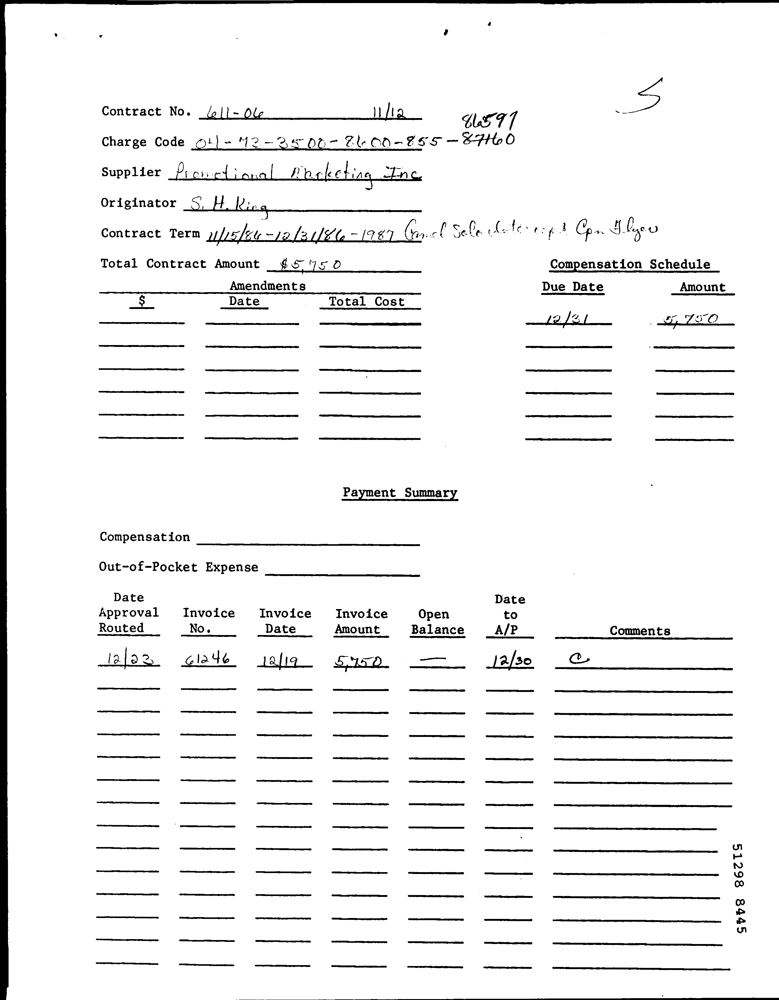 5
Contract No. 611-06 11/12
86597
Charge Code 04-72-3500-8600-855-87460
Supplier Promotional Marketing Inc
Originator S. H. King
Contract Term 11/15/86-12/31/86-1987 Camel Cpn Flyer
Total Contract Amount $5,750
Compensation Schedule
Amendments Due Date Amount
$ Date Total Cost
12/31 5,750
Payment Summary
Compensation
Out-of-Pocket Expense
Date Approval Routed Invoice No. Invoice Date Invoice Amount Open Balance Date to A/P Comments
12/23 61246 12/19 5,750 — 12/30 C
51298 8445